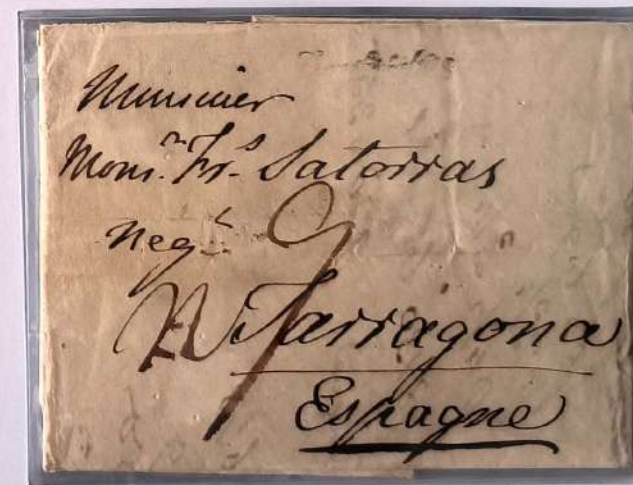 Monsieur
Monsr. Frs. Satorras
Negt.
A Tarragona
Espagne